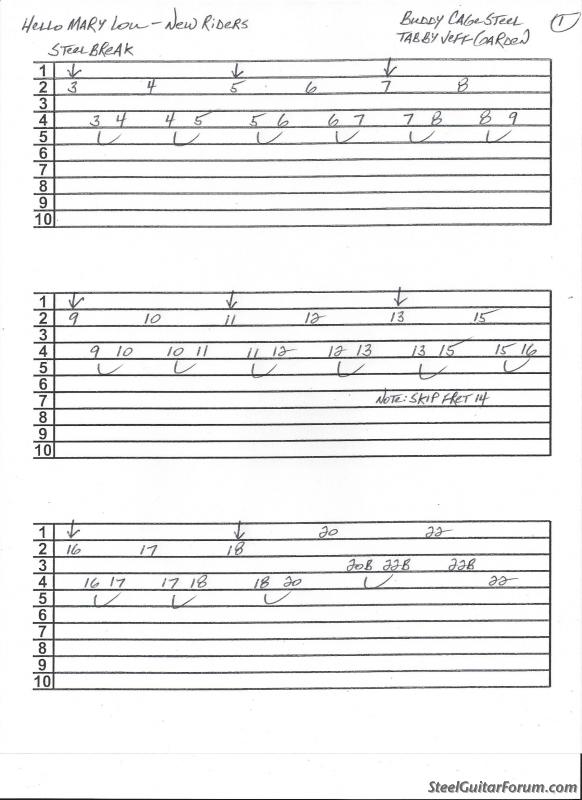 HELLO MARY LOU - NEW RIDERS
BUDDY CAGE STEEL
1
STEEL BREAK
TAB BY JEFF (GARDEN)
1
2 3 4 5 6 7 8
3
4 3 4 4 5 5 6 6 7 7 8 8 9
5
6
7
8
9
10
1
2 9 10 11 12 13 15
3
4 9 10 10 11 11 12 12 13 13 15 15 16
5
6
7 NOTE: SKIP FRET 14
8
9
10
1 20 22
2 16 17 18
3 20B 22B 22B
4 16 17 17 18 18 20 22
5
6
7
8
9
10
SteelGuitarForum.com